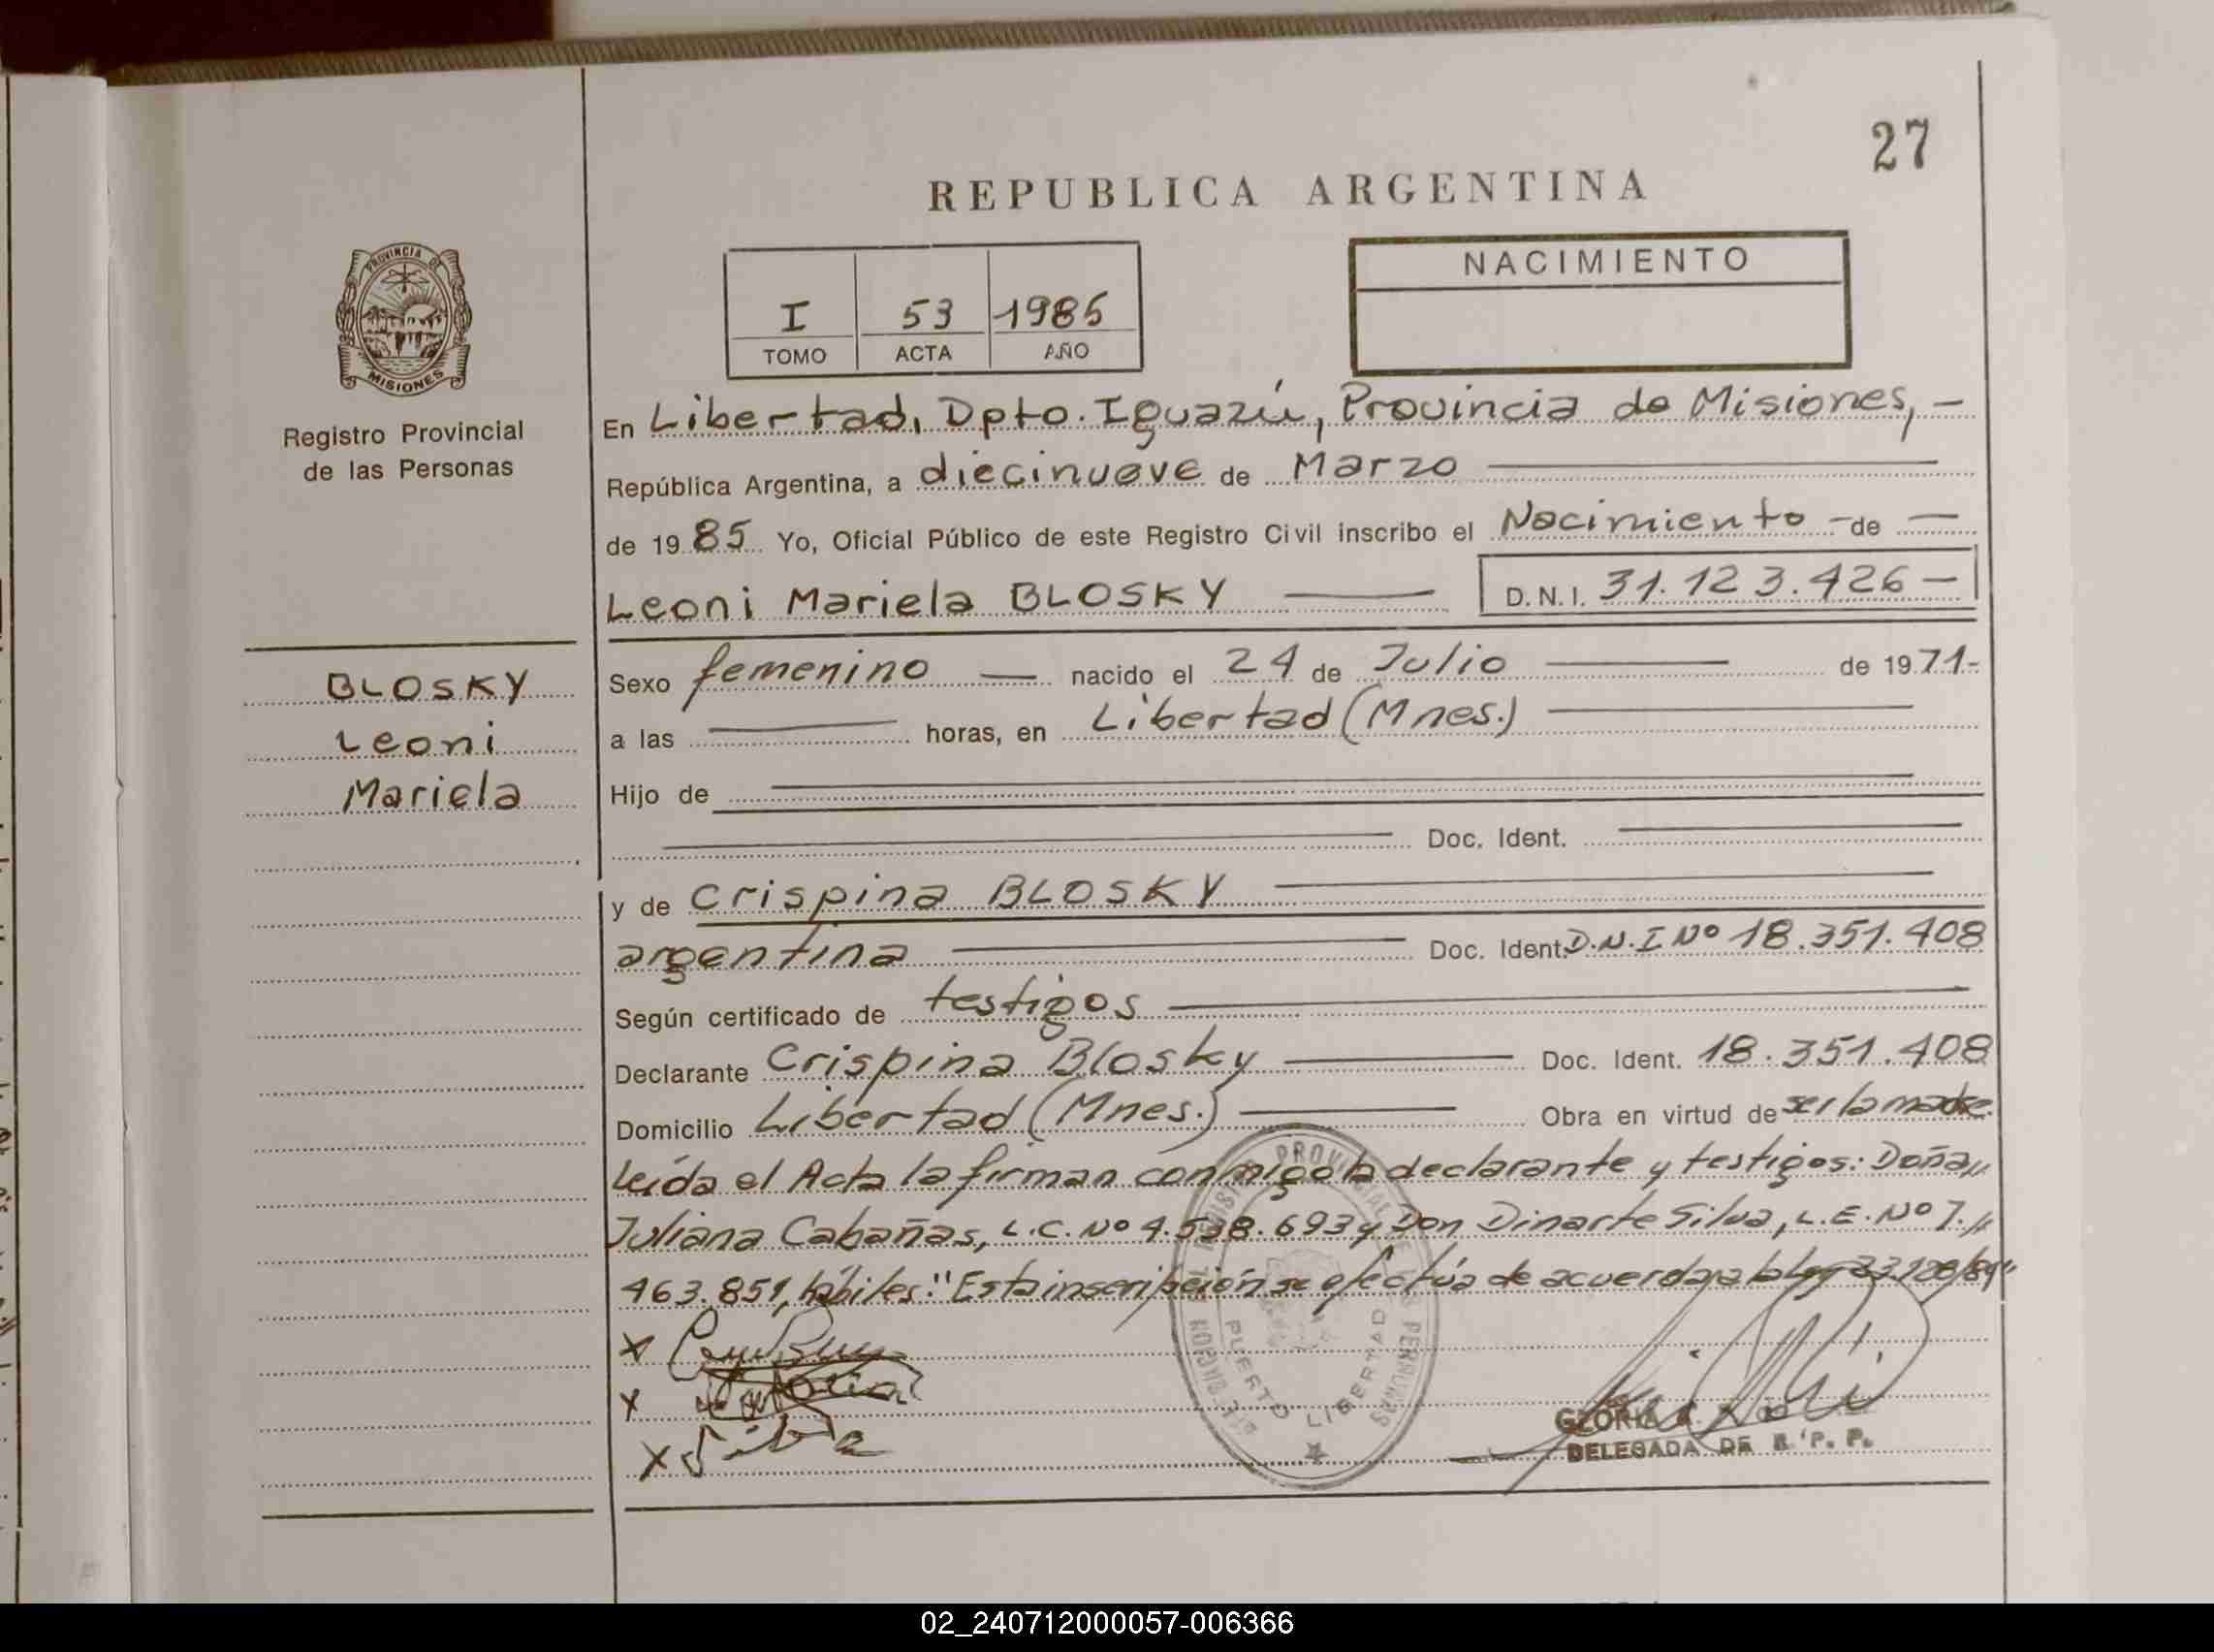 27
REPUBLICA ARGENTINA
PROVINCIA DE
MISIONES
Registro Provincial
de las Personas
I 53 1985
TOMO ACTA AÑO
NACIMIENTO
En Libertad, Dpto. Iguazú, Provincia de Misiones, —
República Argentina, a diecinueve de Marzo
de 1985 Yo, Oficial Público de este Registro Civil inscribo el Nacimiento - de —
Leoni Mariela BLOSKY — D.N.I. 31.123.426 —
BLOSKY
Leoni
Mariela
Sexo femenino — nacido el 24 de Julio — de 1971-
a las — horas, en Libertad (Mnes.) —
Hijo de
Doc. Ident.
y de Crispina BLOSKY —
argentina — Doc. Ident. D.N.I Nº 18.351.408
Según certificado de testigos —
Declarante Crispina Blosky — Doc. Ident. 18.351.408
Domicilio Libertad (Mnes.) — Obra en virtud de ser la madre
Leída el Acta la firman conmigo la declarante y testigos: Doña,,
Juliana Cabañas, L.C. Nº 4.538.693 y Don Dinarte Silva, L.E. Nº 7.,,
463.851, hábiles: "Esta inscripción se efectúa de acuerdo a la ley
X
X
X Silva
PUERTO LIBERTAD
GLORIA
DELEGADA DE R. P. P.
02_240712000057-006366